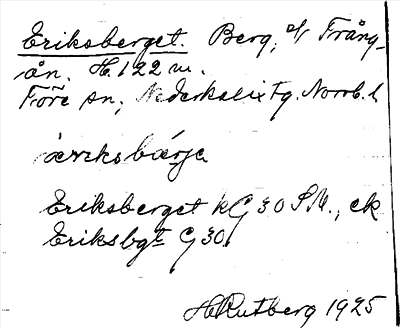 Eriksberget. Berg, v/ Trång-
ån. H. 122 m.
Töre sn, Nederkalix Tg. Norrb. l
ä̀riksbær̀je
Eriksberget kG 30 SM., ek
Eriksbgt G 30.
HRutberg 1925